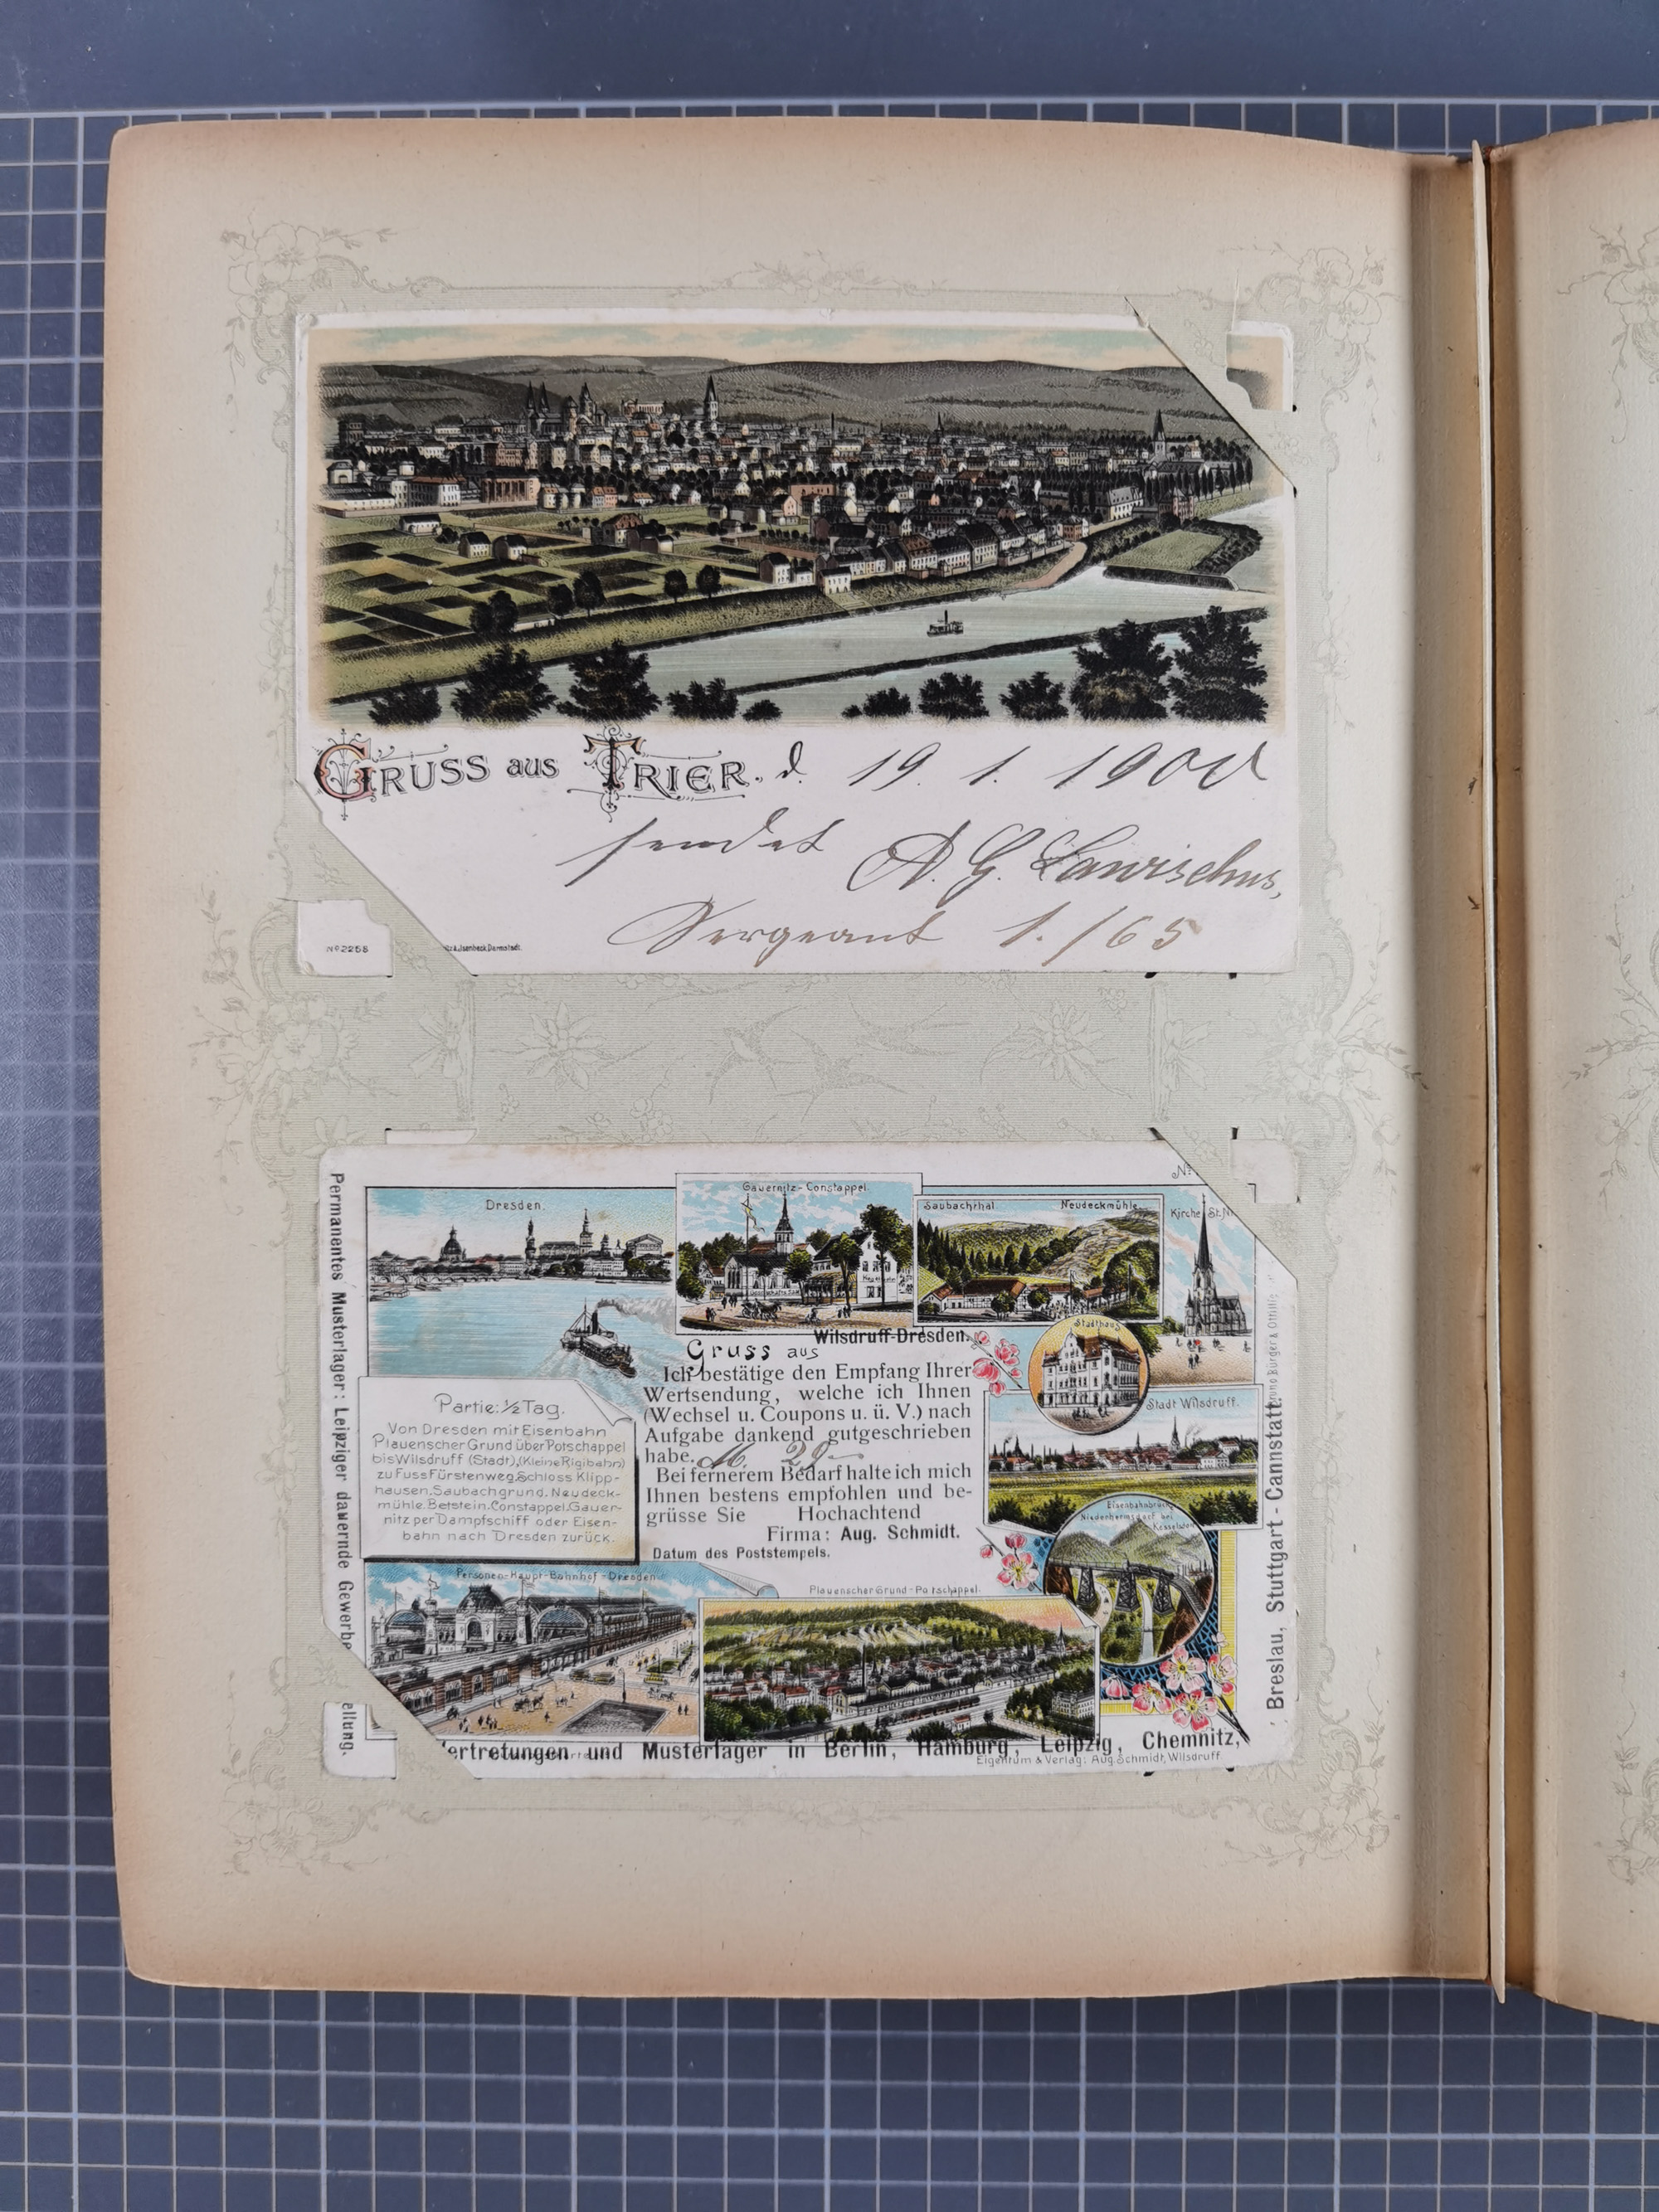 GRUSS aus TRIER. d. 19. 1. 1900
sendet A. G. Lawischus,
Sergeant 1./65
No 2258
Isenbeck, Darmstadt.
Permanentes Musterlager: Leipziger dauernde Gewerbe
ellung.
No
Dresden.
Gauernitz-Constappel.
Saubachthal. Neudeckmühle.
Kirche St. Ni
Wilsdruff-Dresden.
Gruss aus
Ich bestätige den Empfang Ihrer
Wertsendung, welche ich Ihnen
(Wechsel u. Coupons u. ü. V.) nach
Aufgabe dankend gutgeschrieben
habe. M.
Bei fernerem Bedarf halte ich mich
Ihnen bestens empfohlen und be-
grüsse Sie Hochachtend
Firma: Aug. Schmidt.
Datum des Poststempels.
Partie: ½ Tag.
Von Dresden mit Eisenbahn
Plauenscher Grund über Potschappel
bis Wilsdruff (Stadt), (Kleine Rigibahn)
zu Fuss Fürstenweg, Schloss Klipp-
hausen, Saubachgrund, Neudeck-
mühle, Betstein, Constappel, Gauer-
nitz per Dampfschiff oder Eisen-
bahn nach Dresden zurück.
Stadthaus
Stadt Wilsdruff.
Eisenbahnbrücke
Niederhermsdorf bei
Kesselsdorf
Personen-Haupt-Bahnhof-Dresden.
Plauenscher Grund-Potschappel.
Breslau, Stuttgart - Cannstatt.
Bruno Bürger & Ottillie
ertretungen und Musterlager in Berlin, Hamburg, Leipzig, Chemnitz,
Eigentum & Verlag: Aug. Schmidt, Wilsdruff